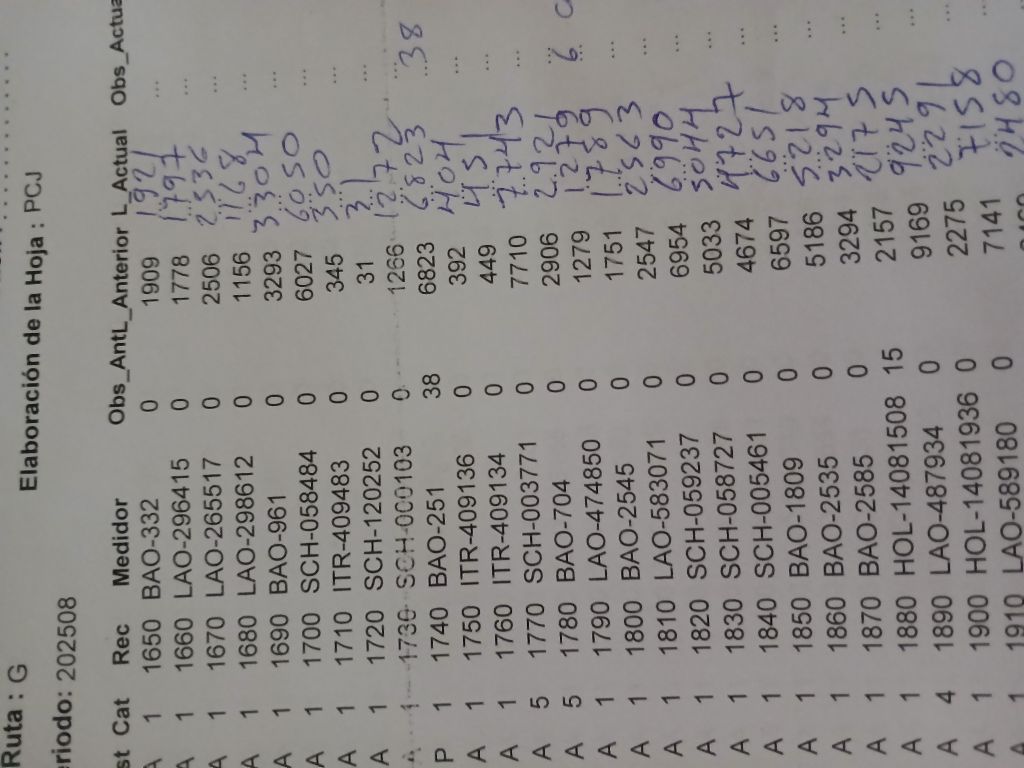 Ruta : G
Elaboración de la Hoja : PCJ
eriodo: 202508
st Cat Rec Medidor Obs_AntL L_Anterior L_Actual Obs_Actua
A 1 1650 BAO-332 0 1909 1921 ...
A 1 1660 LAO-296415 0 1778 1797 ...
A 1 1670 LAO-265517 0 2506 2536 ...
A 1 1680 LAO-298612 0 1156 1168 ...
A 1 1690 BAO-961 0 3293 3304 ...
A 1 1700 SCH-058484 0 6027 6050 ...
A 1 1710 ITR-409483 0 345 350 ...
A 1 1720 SCH-120252 0 31 31 ...
A 1 1730 SCH-000103 0 1266 1272 ...
P 1 1740 BAO-251 38 6823 6823 38
A 1 1750 ITR-409136 0 392 404 ...
A 1 1760 ITR-409134 0 449 451 ...
A 5 1770 SCH-003771 0 7710 7743 ...
A 5 1780 BAO-704 0 2906 2921 ...
A 1 1790 LAO-474850 0 1279 1279 6
A 1 1800 BAO-2545 0 1751 1789 ...
A 1 1810 LAO-583071 0 2547 2563 ...
A 1 1820 SCH-059237 0 6954 6990 ...
A 1 1830 SCH-058727 0 5033 5044 ...
A 1 1840 SCH-005461 0 4674 4727 ...
A 1 1850 BAO-1809 0 6597 6651 ...
A 1 1860 BAO-2535 0 5186 5218 ...
A 1 1870 BAO-2585 0 3294 3294 ...
A 1 1880 HOL-14081508 15 2157 2175 ...
A 4 1890 LAO-487934 0 9169 9245 ...
A 1 1900 HOL-14081936 0 2275 2291 ...
A 1 1910 LAO-589180 0 7141 7158 ...
2480